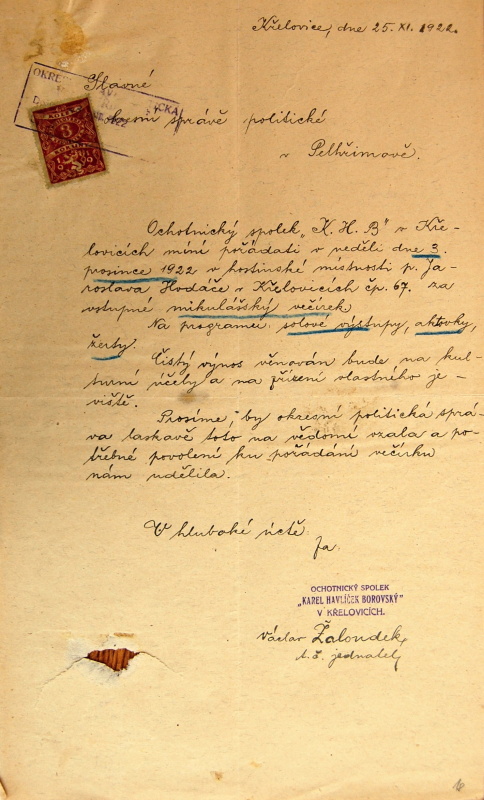 Křelovice, dne 25. XI. 1922.
Slavné
okresní správě politické
v Pelhřimově.
Ochotnický spolek „K. H. B" v Kře-
lovicích míní pořádati v neděli dne 3.
prosince 1922 v hostinské místnosti p. Ja-
roslava Hodáče v Křelovicích čp. 67. za
vstupné mikulášský večírek.
Na programu: solové výstupy, aktovky,
žerty.
Čistý výnos věnován bude na kul-
turní účely a na zřízení vlastného je-
viště.
Prosíme, by okresní politická sprá-
va laskavě toto na vědomí vzala a po-
třebné povolení ku pořádání večírku
nám udělila.
V hluboké úctě
Za
OCHOTNICKÝ SPOLEK
„KAREL HAVLÍČEK BOROVSKÝ"
V KŘELOVICÍCH.
Václav Žaloudek,
t. č. jednatel